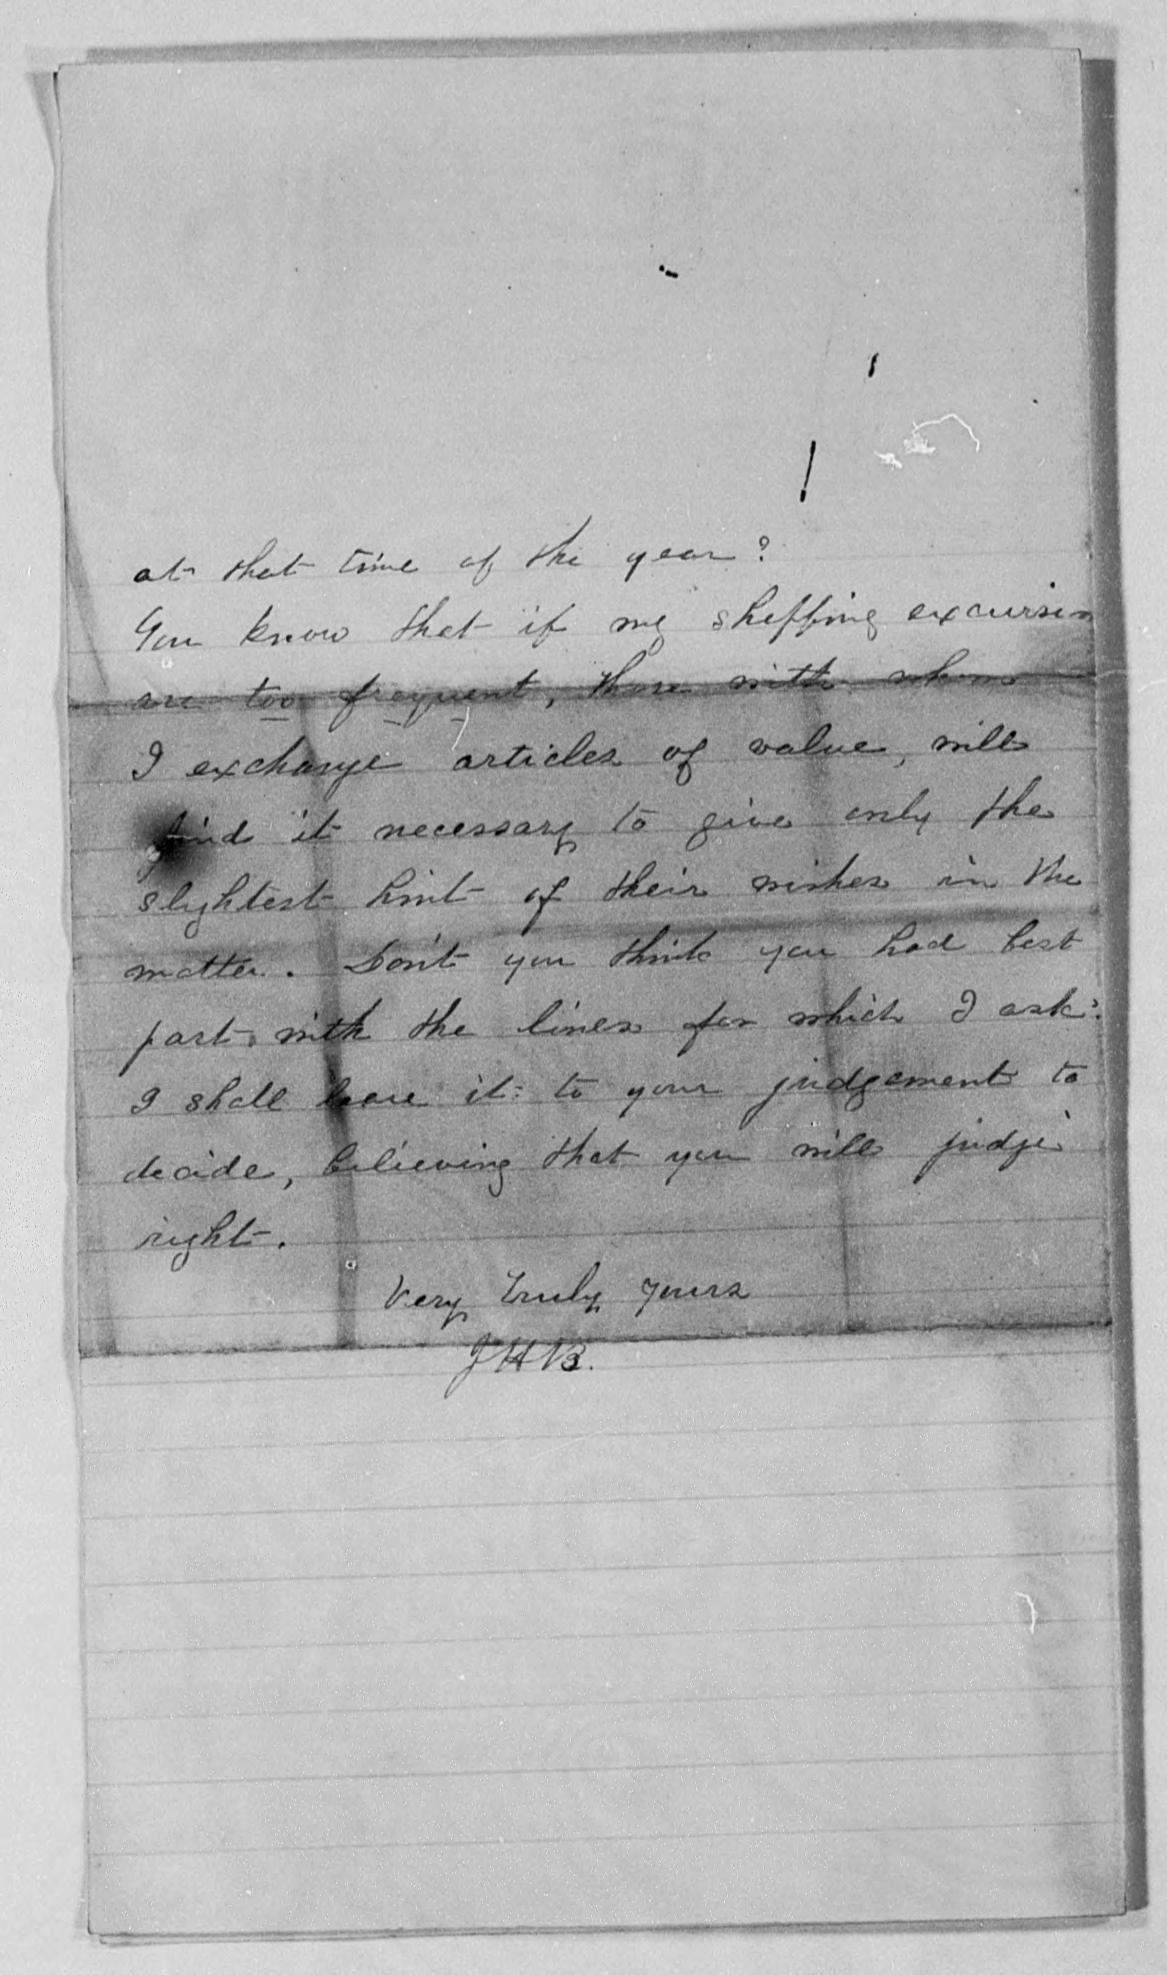 at that time of the year?
You know that if my shopping excursion
are too frequent, those with whom
I exchange articles of value, will
find it necessary to give only the
slightest hint of their wishes in the
matter. Don't you think you had best
part with the lines for which I ask?
I shall leave it to your judgement to
decide, believing that you will judge
right.
Very truly yours
JHB.